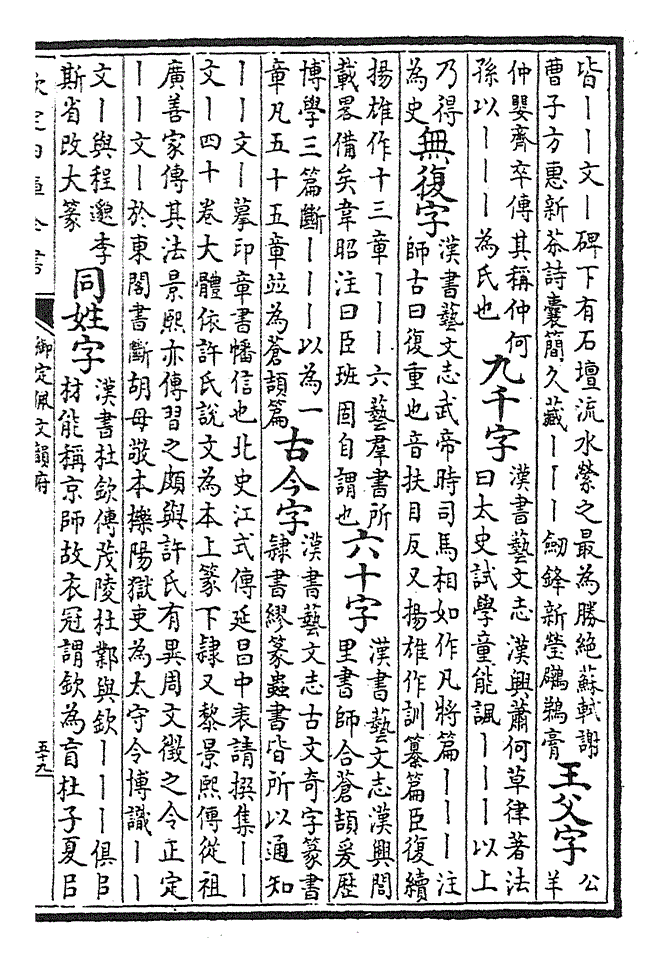 皆丨丨文丨碑下有石壇流水縈之最為勝絕蘇軾謝
曹子方惠新茶詩囊簡久藏丨丨丨劒鋒新瑩鸊鵜膏
王父字
公
羊
仲嬰齊卒傳其稱仲何
孫以丨丨丨為氏也
九千字
漢書藝文志漢興蕭何草律著法
曰太史試學童能諷丨丨丨以上
乃得
為史
無復字
漢書藝文志武帝時司馬相如作凡將篇丨丨丨注
師古曰復重也音扶目反又揚雄作訓纂篇臣復續
揚雄作十三章丨丨丨六藝羣書所
載畧備矣韋昭注曰臣班固自謂也
六十字
漢書藝文志漢興閭
里書師合蒼頡爰歷
博學三篇斷丨丨丨以為一
章凡五十五章並為蒼頡篇
古今字
漢書藝文志古文奇字篆書
隸書繆篆蟲書皆所以通知
丨丨文丨摹印章書幡信也北史江式傳延昌中表請撰集丨丨
文丨四十卷大體依許氏說文為本上篆下隸又黎景熙傳從祖
廣善家傳其法景熙亦傳習之頗與許氏有異周文徵之令正定
丨丨文丨於東閣書斷胡母敬本櫟陽獄吏為太守令博識丨丨
文丨與程邈李
斯省改大篆
同姓字
漢書杜欽傳茂陵杜鄴與欽丨丨丨俱㠯
材能稱京師故衣冠謂欽為盲杜子夏㠯
欽定四庫全書
御定佩文韻府
五十九